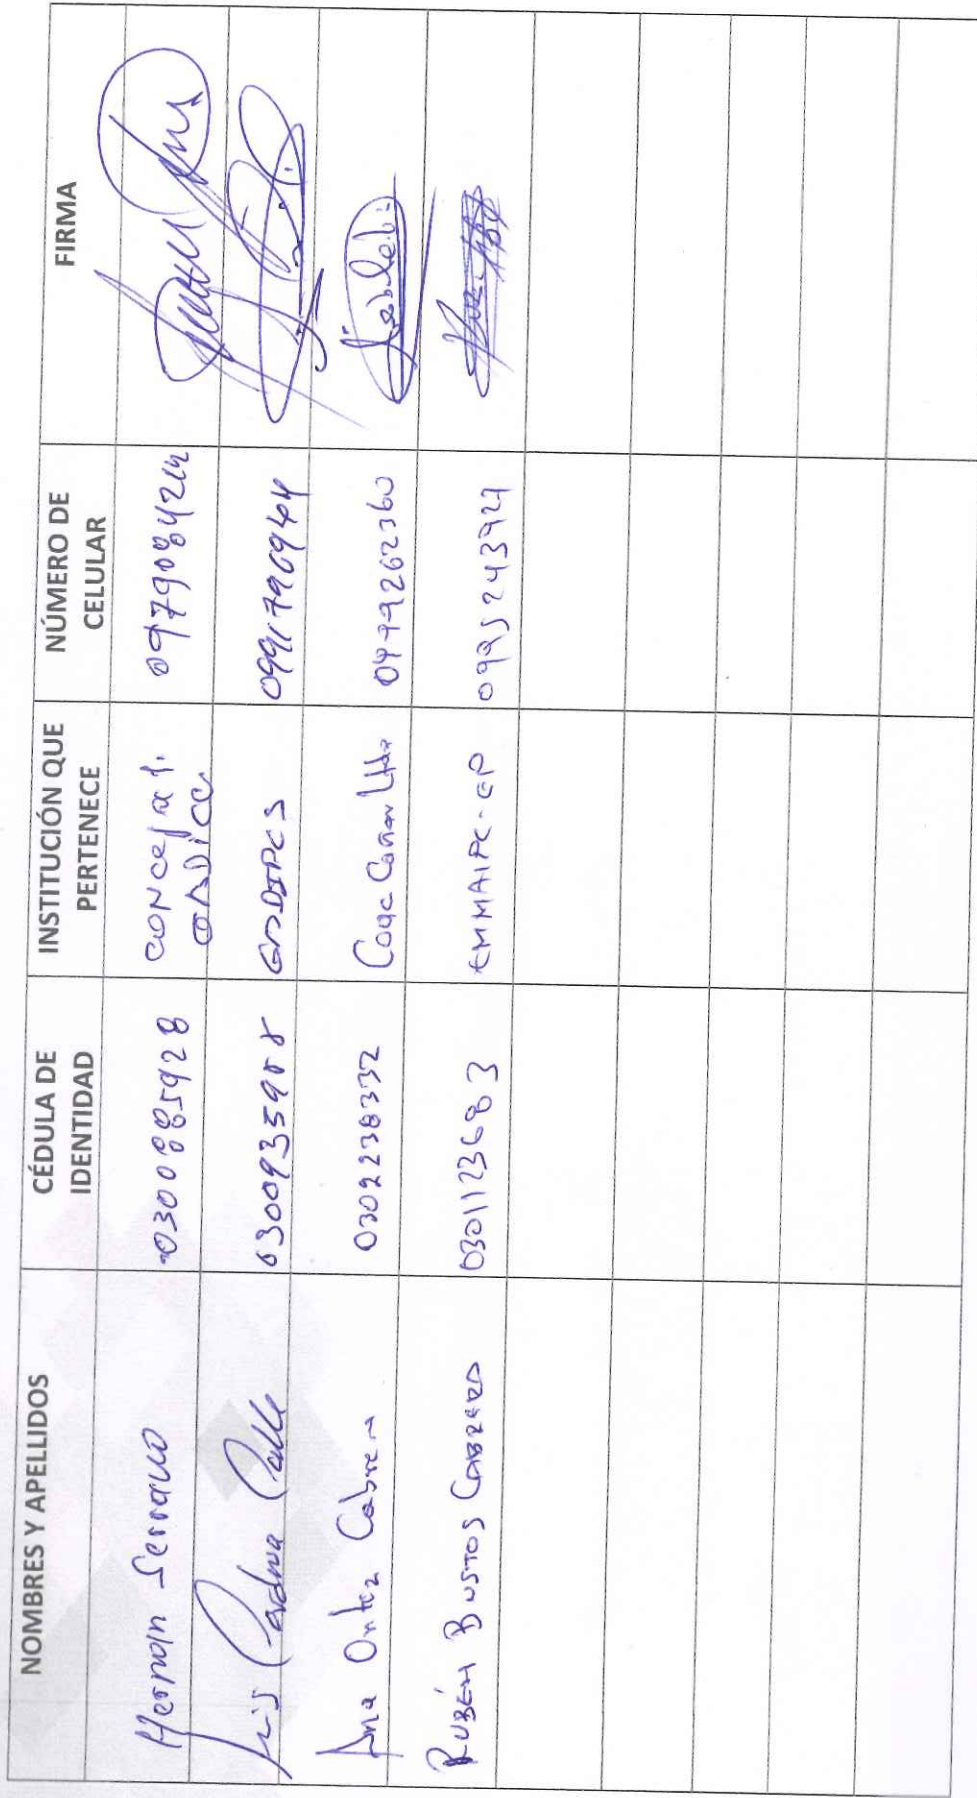 NOMBRES Y APELLIDOS CÉDULA DE IDENTIDAD INSTITUCIÓN QUE PERTENECE NÚMERO DE CELULAR FIRMA
Hernan Serrano 0300885928 concejal. GADICC 
Luis Calle 0300935988 GADIPCS 0991796944
Ana Cabrera 0302238332 Coac Cañar Ltda 0999262360
RUBÉN BUSTOS CABRERA 0301123683 EMMAIPC-EP 0995243927